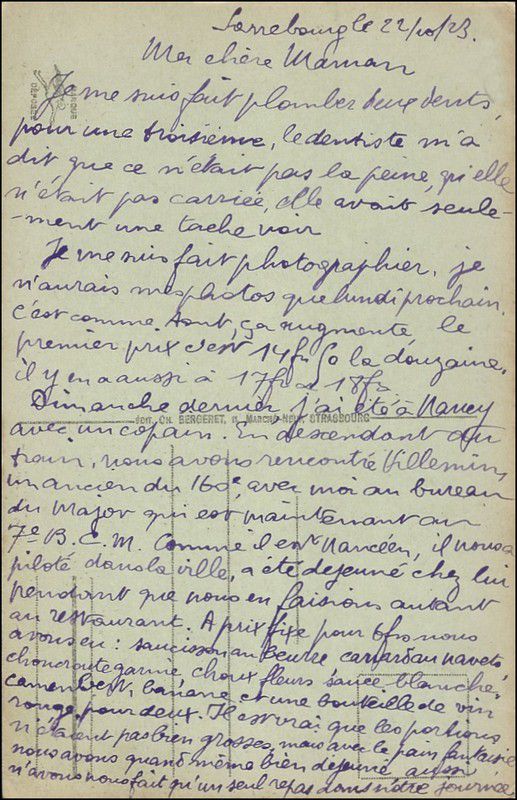 Sarrebourg le 22/10/23.
Ma chère Maman
Je me suis fait plomber deux dents,
pour une troisième, le dentiste m'a
dit que ce n'était pas la peine, qu'elle
n'était pas cariée, elle avait seule-
-ment une tache noir
Je me suis fait photographier, je
n'aurais mes photos que lundi prochain.
c'est comme tout, ça augmente le
premier prix c'est 14frs 50 la douzaine.
il y en a aussi à 17frs et 18frs
Dimanche dernier j'ai été à Nancy
EDIT. CH. BERGERET, MARCHÉ-NEUF, STRASBOURG
avec un copain. En descendant du
train, nous avons rencontré Villemin,
un ancien du 160e avec moi au bureau
du Major qui est maintenant au
7e B.C.M. Comme il est Nancéen, il nous a
piloté dans la ville, a été dejeuné chez lui
pendant que nous en faisions autant
au restaurant. A prix fixe pour 6frs nous
avons eu : saucisson au beurre canard au navets
choucroute garnie, choux fleurs sauce blanche.
camembert, banane et une bouteille de vin
rouge pour deux. Il est vrai que les portions
n'étaient pas bien grosses, mais avec le pain fantaisie
nous avons quand même bien dejeuné aussi
n'avons nous fait qu'un seul repas dans notre journée
MARQUE
DÉPOSÉE